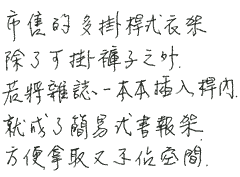 市售的多掛桿式衣架
除了可掛褲子之外.
若將雜誌、一本本插入桿內.
就成了簡易式書報架.
方便拿取又不佔空間.